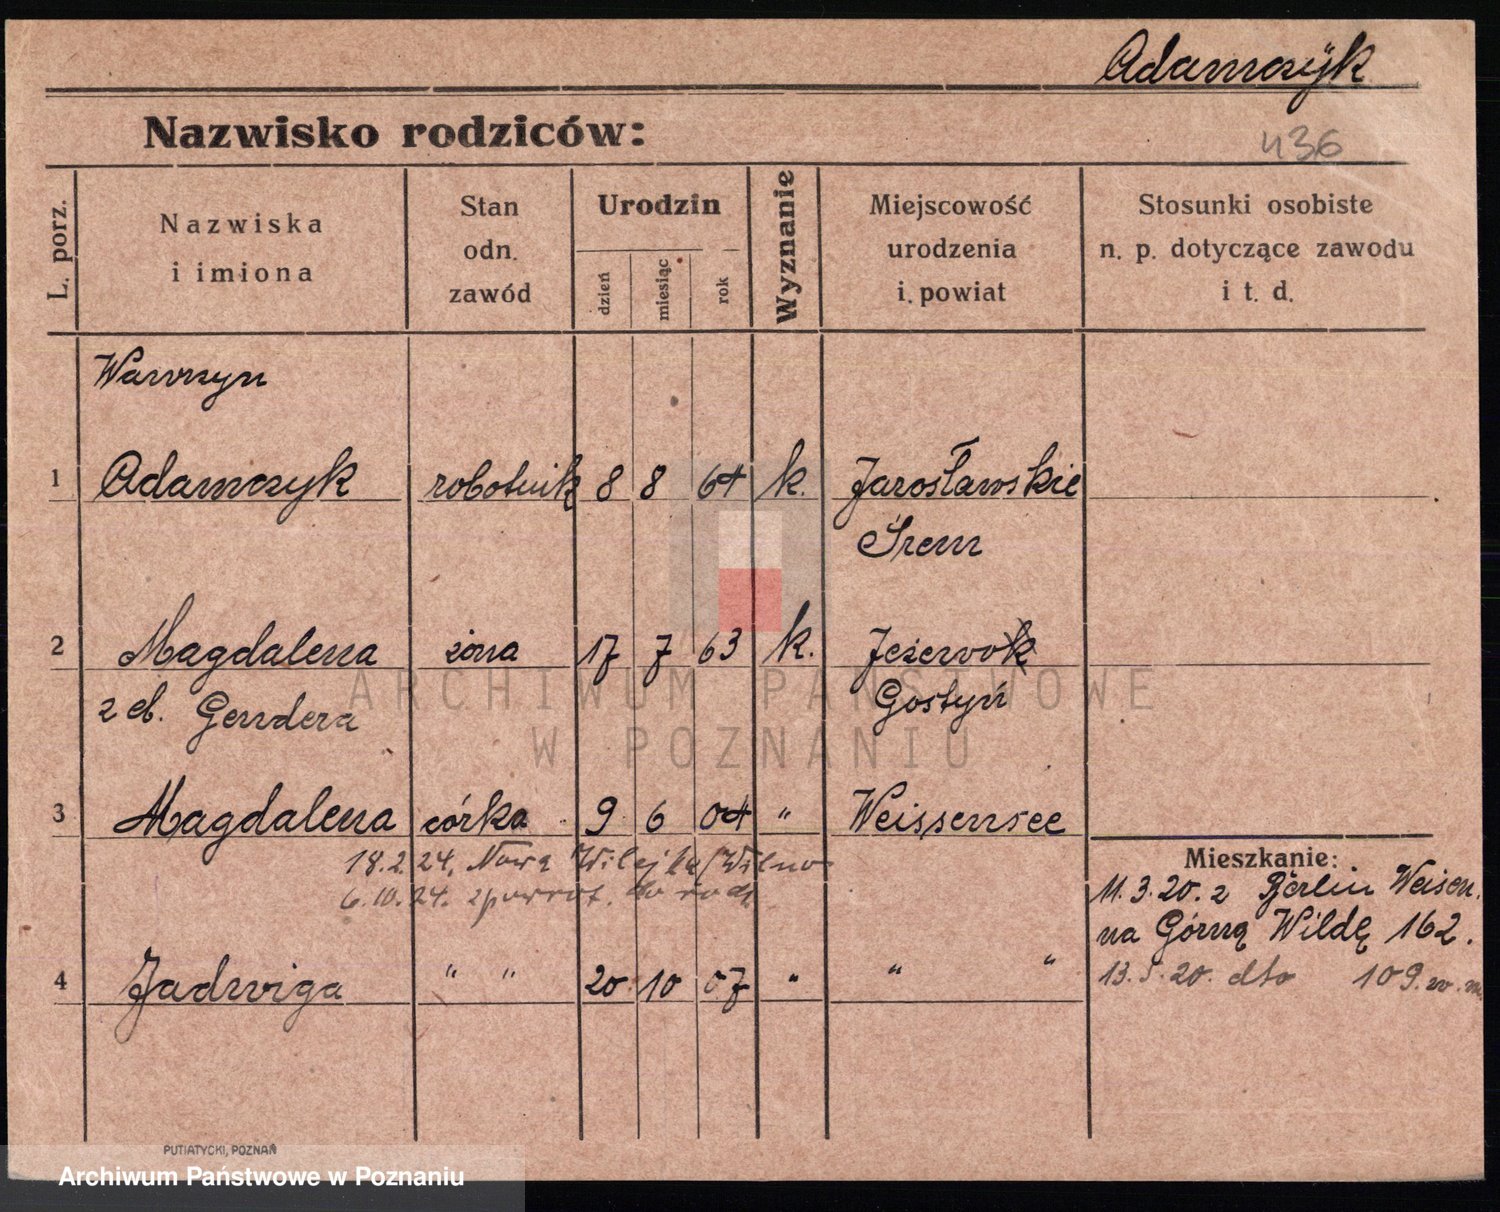 Adamczyk
Nazwisko rodziców:
436
L. porz.
Nazwiska
i imiona
Stan
odn.
zawód
Urodzin
dzień
miesiąc
rok
Wyznanie
Miejscowość
urodzenia
i. powiat
Stosunki osobiste
n. p. dotyczące zawodu
i t. d.
Wawrzyn
1 Adamczyk robotnik 8 8 64 k. Jarosławskie
Śrem
2 Magdalena żona 17 7 63 k. Jeżewo
z d. Gendera Gostyń
3 Magdalena córka 9 6 04 " Weissensee
18.2.24. Nowa Wilejka/Wilno
6.10.24. zpowrot. do rodz.
Mieszkanie:
11.3.20. z Berlin Weisen.
na Górną Wildę 162.
4 Jadwiga " " 20 10 07 " " "
13.5.20. dto 109. w. m.
ARCHIWUM PAŃSTWOWE
W POZNANIU
PUTIATYCKI, POZNAŃ
Archiwum Państwowe w Poznaniu